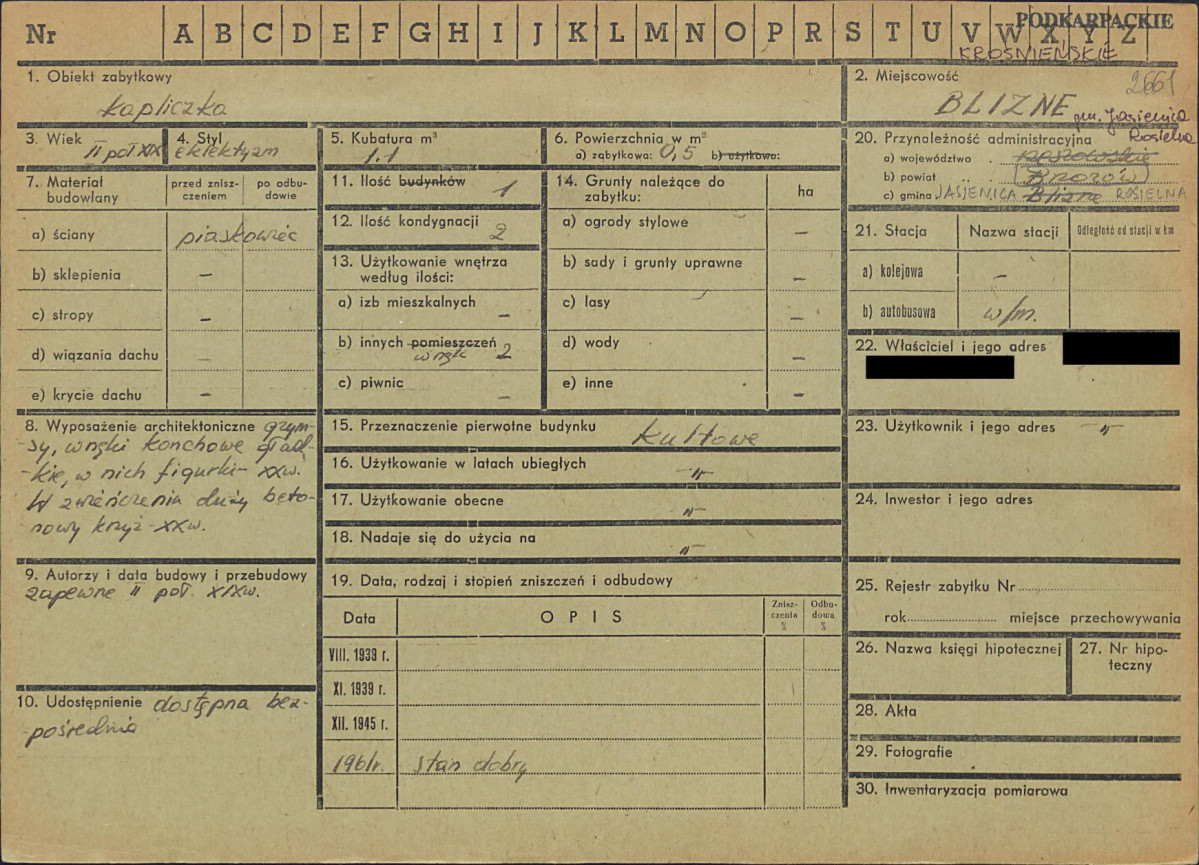 Nr A B C D E F G H I J K L M N O P R S T U V W X Y Z
PODKARPACKIE
KROŚNIEŃSKIE
1. Obiekt zabytkowy
kapliczka
2. Miejscowość
2661
BLIZNE gm. Jasienica
Rosielna
3. Wiek
II poł XIX
4. Styl
eklektyzm
5. Kubatura m³
1,1
6. Powierzchnia w m²
a) zabytkowa: 0,5 b) użytkowa:
20. Przynależność administracyjna
a) województwo . rzeszowskie
b) powiat . . Brzozów
c) gmina JASIENICA Blizne ROSIELNA
7. Materiał budowlany
przed zniszczeniem
po odbudowie
a) ściany piaskowiec
b) sklepienia –
c) stropy –
d) wiązania dachu –
e) krycie dachu –
11. Ilość budynków 1
12. Ilość kondygnacji 2
13. Użytkowanie wnętrza
według ilości:
a) izb mieszkalnych –
b) innych pomieszczeń
wnęki 2
c) piwnic –
14. Grunty należące do
zabytku:
ha
a) ogrody stylowe –
b) sady i grunty uprawne –
c) lasy –
d) wody –
e) inne –
21. Stacja Nazwa stacji Odległość od stacji w km
a) kolejowa –
b) autobusowa w/m.
22. Właściciel i jego adres
8. Wyposażenie architektoniczne gzym-
sy, wnęki konchowe gład-
kie, w nich figurki – XXw.
W zwieńczenia duży beto-
nowy krzyż – XXw.
15. Przeznaczenie pierwotne budynku kultowe
16. Użytkowanie w latach ubiegłych –"–
17. Użytkowanie obecne –"–
18. Nadaje się do użycia na –"–
23. Użytkownik i jego adres –"–
24. Inwestor i jego adres
9. Autorzy i data budowy i przebudowy
zapewne II poł. XIXw.
10. Udostępnienie dostępna bez-
pośrednio
19. Data, rodzaj i stopień zniszczeń i odbudowy
Data OPIS Zniszczenia % Odbudowa %
VIII. 1939 r.
XI. 1939 r.
XII. 1945 r.
1961r. stan dobry
25. Rejestr zabytku Nr
rok miejsce przechowywania
26. Nazwa księgi hipotecznej
27. Nr hipoteczny
28. Akta
29. Fotografie
30. Inwentaryzacja pomiarowa